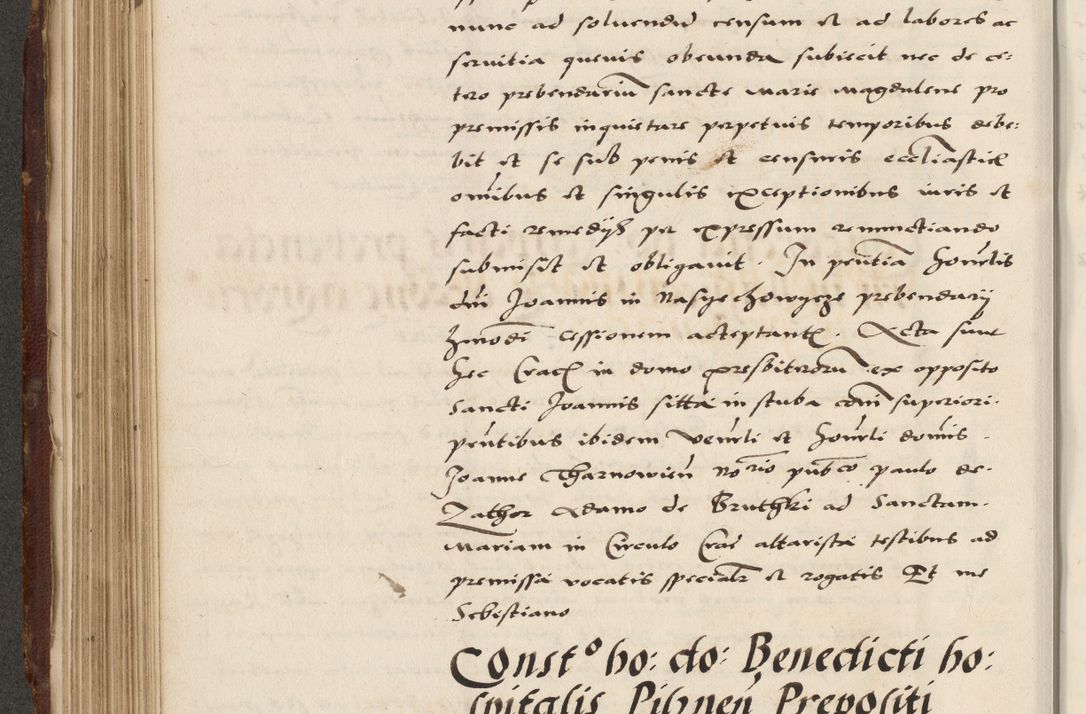 nunc ad soluendū censum et ad labores ac
seruitia queuis obeunda subiecit nec de ce:
tero prebendariū sancte Marie Magdalene pro
premissis inquietare perpetuis temporibus debe:
bit et se sub penis et censuris eccl̄iasticꝭ
om̄ibus et singulis exceptionibus iuris et
facti remedijs per expressum renunctiando
submisit et obligauit. In pn̄tia honr̄lis
dn̄i Joannis in prebendarij
cessionem acceptantꝭ. Acta sunt
hec Cracꝭ in domo presbiterorū ex opposito
Sancti Joannis sitta in stuba superiori.
pn̄tibus ibidem Venr̄li et honr̄li domīs.
Joanne Tharnowień Norio pubco paulo de.
Zathor Adamo de Bruthki ad Sanctam.
Mariam in Circulo Crac altarista testibus ad
premissa vocatis specialr̄ et rogatis Et me
Sebestiano
Const⁰ ho: do: Benedicti ho:
spitalis Pilznen̄ Prepositi